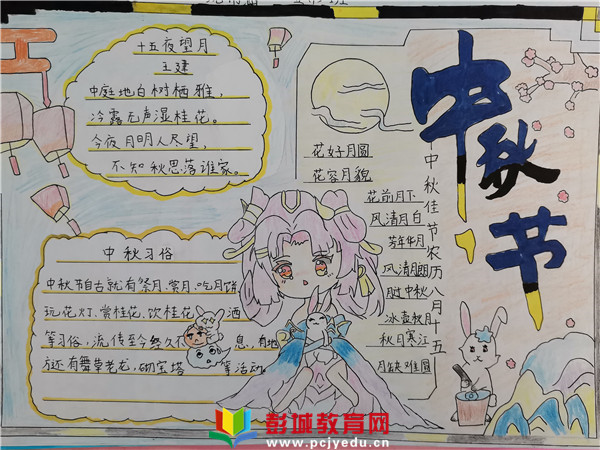 中秋节
十五夜望月
王建
中庭地白树栖雅，
冷露无声湿桂花。
今夜月明人尽望，
不知秋思落谁家。
中秋习俗
中秋节自古就有祭月、赏月、吃月饼
玩花灯、赏桂花、饮桂花 酒
等习俗，流传至今终久不 息，有地
方还有舞草老龙，砌宝塔 等活动
花好月圆
花容月貌
花前月下
风清月白
芳年华月
风清月朗
冰壶秋月
秋月寒江
月缺难圆
中秋佳节农历八月十五
彭城教育网
www.pcjyedu.cn